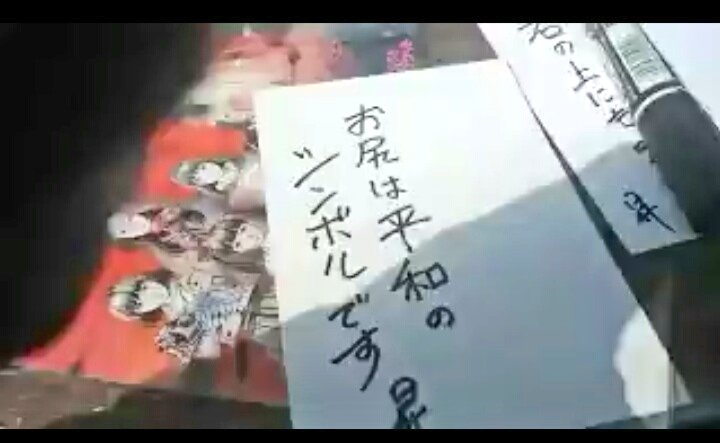 の上にも
昇
お尻は平和の
シンボルです